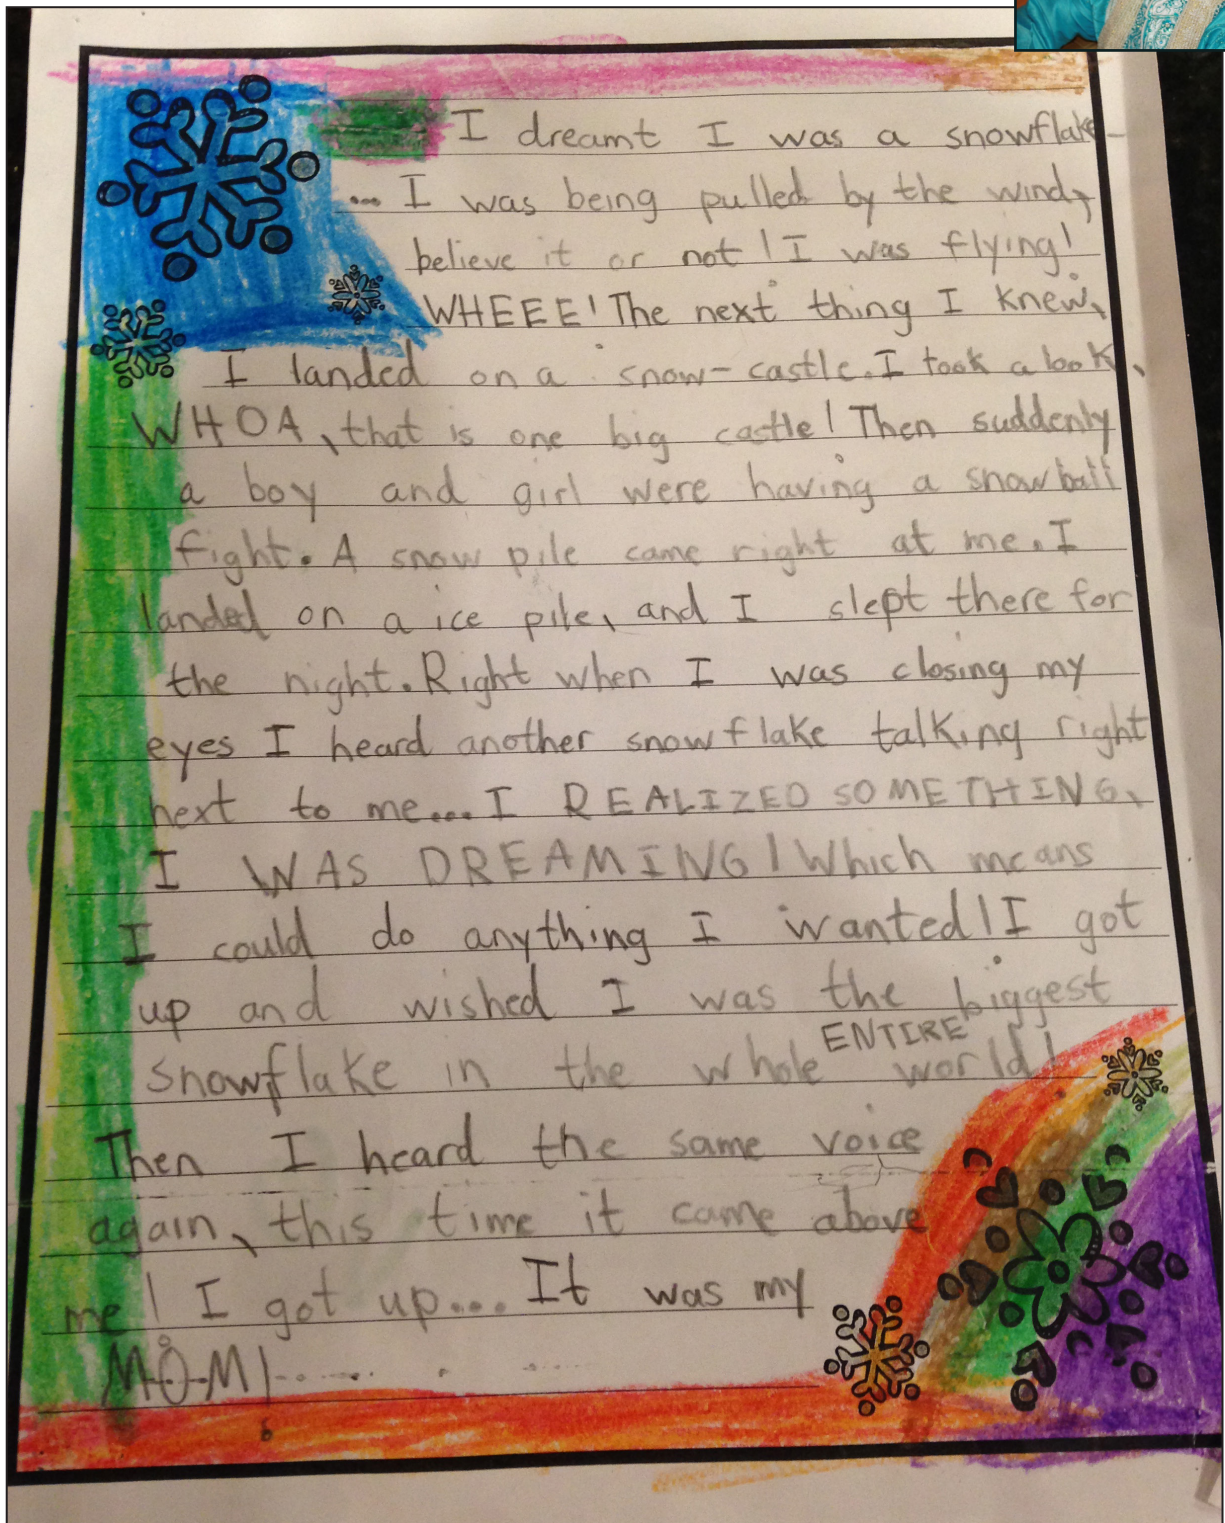 I dreamt I was a snowflake
... I was being pulled by the wind,
believe it or not! I was flying!
WHEEE! The next thing I knew,
I landed on a snow-castle. I took a look,
WHOA, that is one big castle! Then suddenly
a boy and girl were having a snowball
fight. A snow pile came right at me. I
landed on a ice pile, and I slept there for
the night. Right when I was closing my
eyes I heard another snowflake talking right
next to me... I REALIZED SOMETHING,
I WAS DREAMING! Which means
I could do anything I wanted! I got
up and wished I was the biggest
snowflake in the whole ENTIRE world!
Then I heard the same voice
again, this time it came above
me! I got up... It was my
MOM!